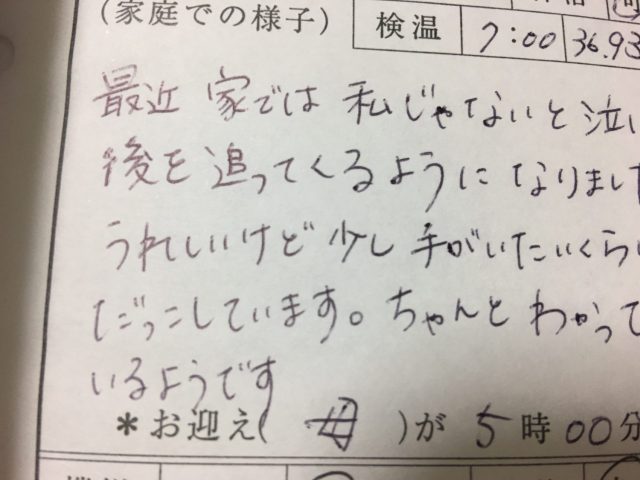 (家庭での様子)
検温 7:00 36.93
最近 家では 私じゃないと泣い
後を追ってくるようになりました
うれしいけど少し手がいたいくらい
だっこしています。ちゃんとわかって
いるようです
*お迎え( 母 )が 5時00分